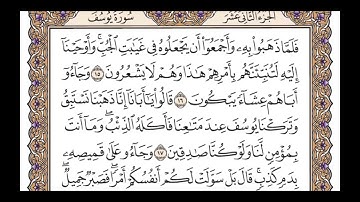 الجزء الثاني عشر سورة يوسف
فَلَمَّا ذَهَبُوا۟ بِهِۦ وَأَجْمَعُوٓا۟ أَن يَجْعَلُوهُ فِى غَيَـٰبَتِ ٱلْجُبِّ ۚ وَأَوْحَيْنَآ
إِلَيْهِ لَتُنَبِّئَنَّهُم بِأَمْرِهِمْ هَـٰذَا وَهُمْ لَا يَشْعُرُونَ ١٥ وَجَآءُوٓ
أَبَاهُمْ عِشَآءً يَبْكُونَ ١٦ قَالُوا۟ يَـٰٓأَبَانَآ إِنَّا ذَهَبْنَا نَسْتَبِقُ
وَتَرَكْنَا يُوسُفَ عِندَ مَتَـٰعِنَا فَأَكَلَهُ ٱلذِّئْبُ ۖ وَمَآ أَنتَ
بِمُؤْمِنٍ لَّنَا وَلَوْ كُنَّا صَـٰدِقِينَ ١٧ وَجَآءُو عَلَىٰ قَمِيصِهِۦ
بِدَمٍ كَذِبٍ ۚ قَالَ بَلْ سَوَّلَتْ لَكُمْ أَنفُسُكُمْ أَمْرًا ۖ فَصَبْرٌ جَمِيلٌ ۖ